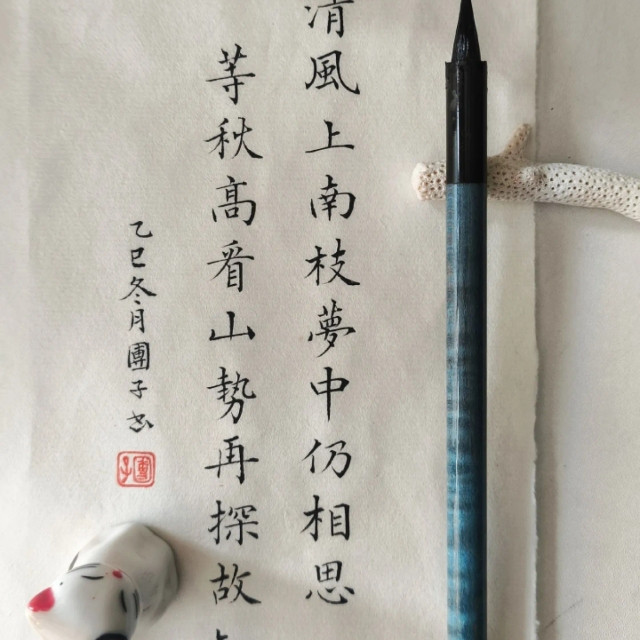 清風上南枝夢中仍相思
等秋高看山勢再探故
乙巳冬月團子书
團子